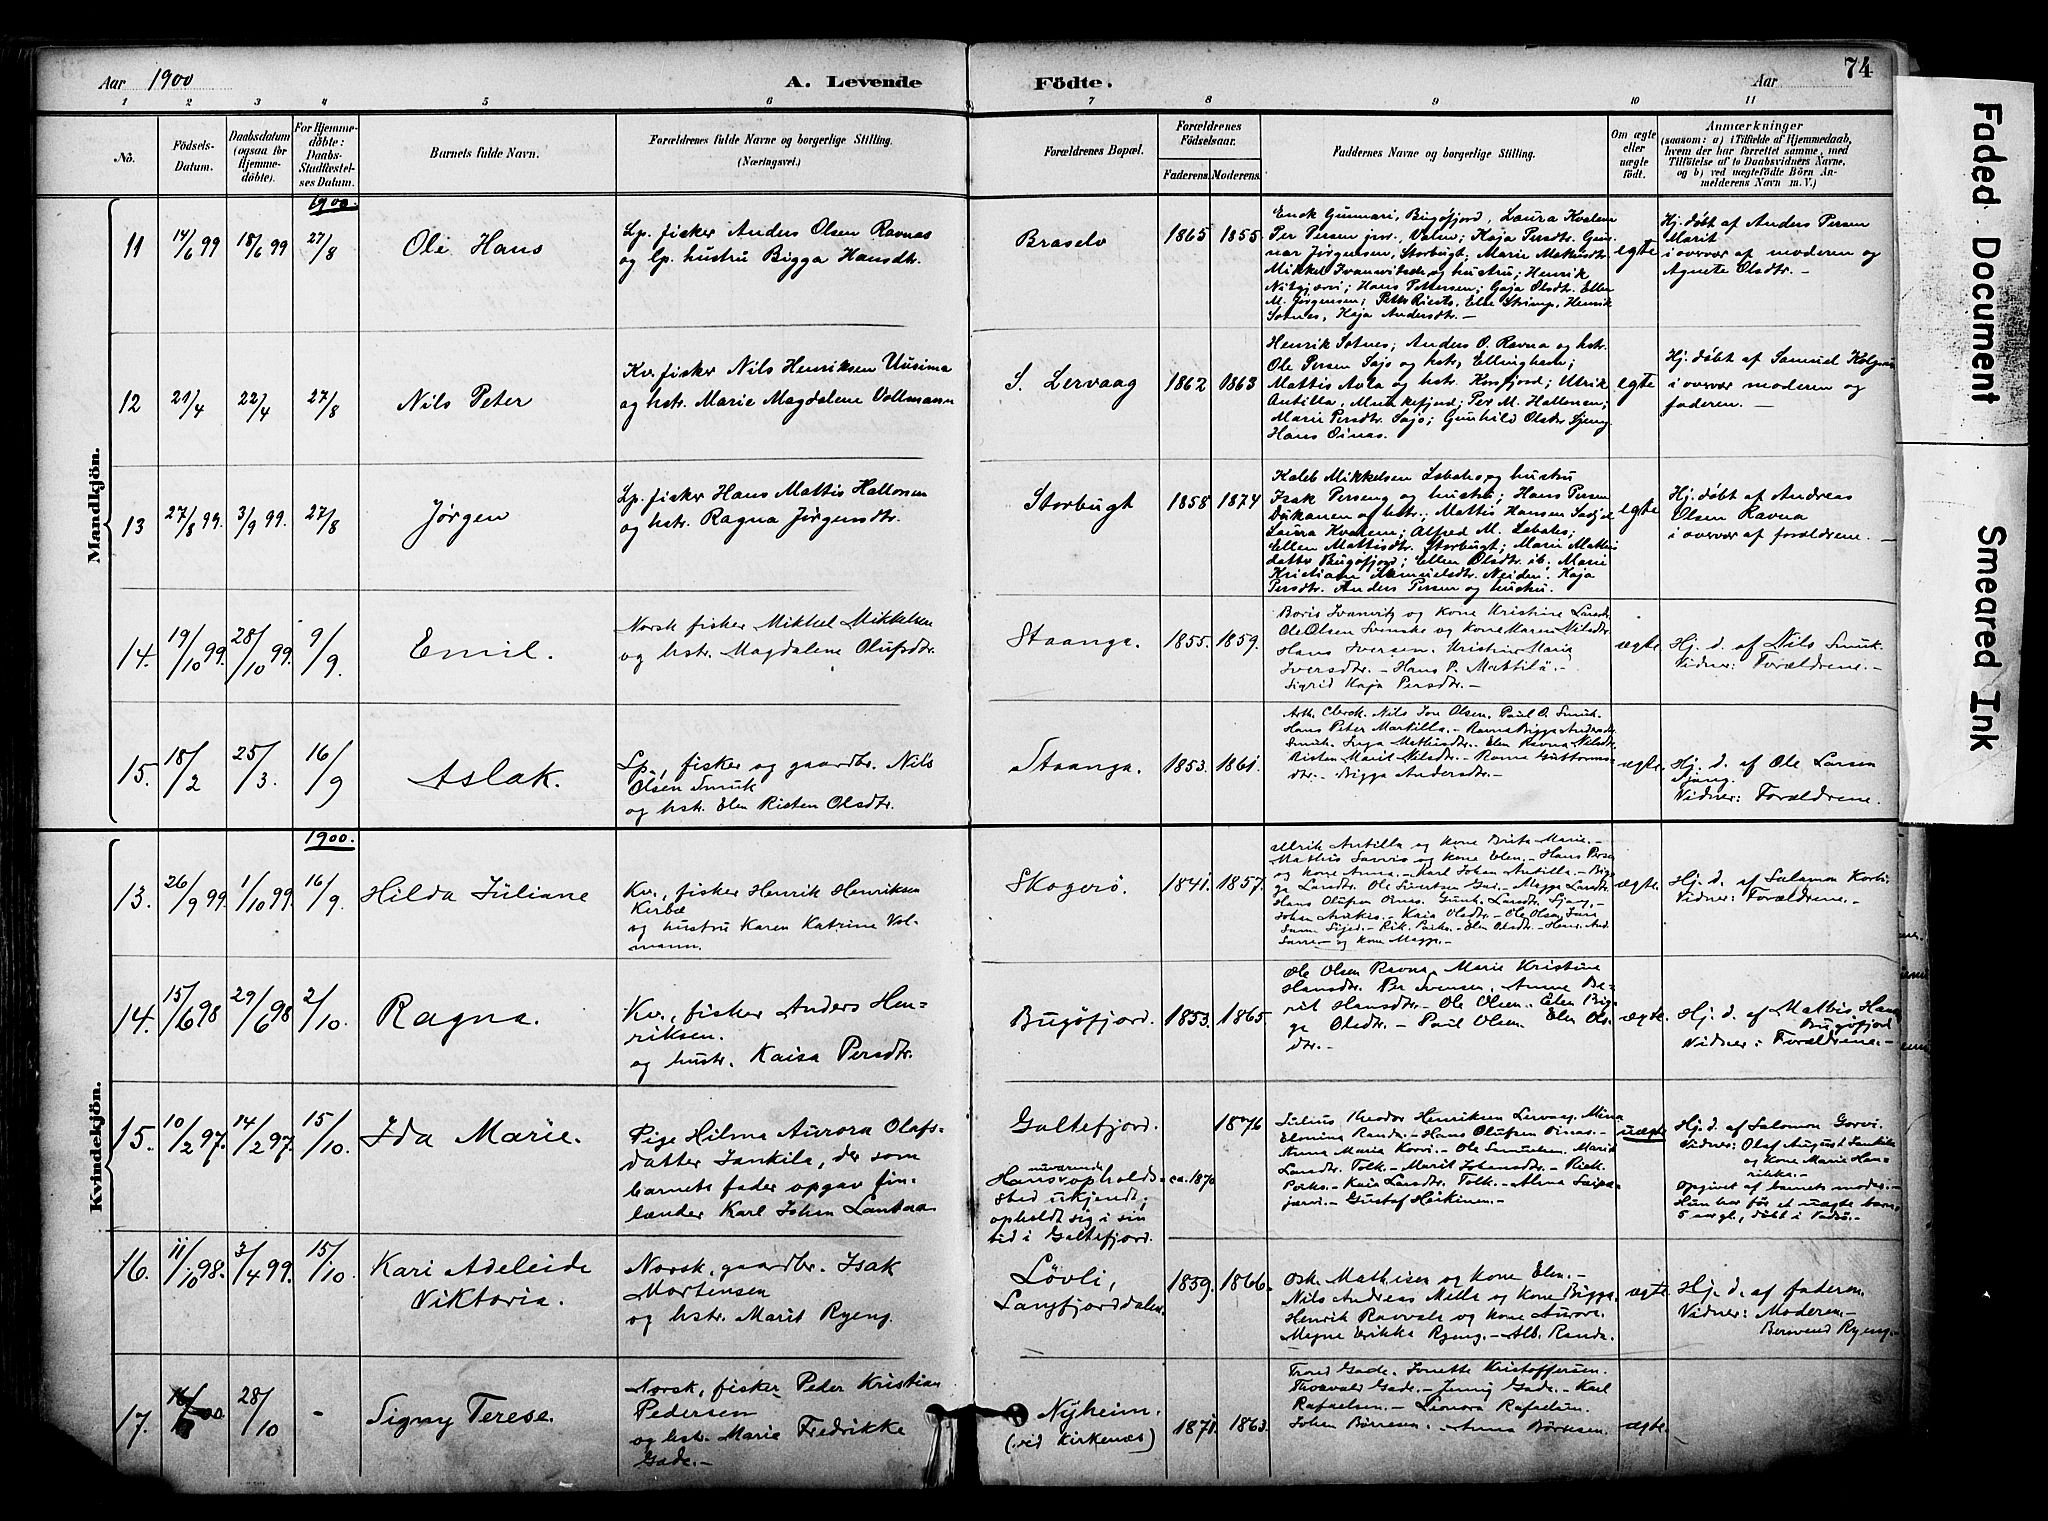 Aar 1900
A. Levende Födte.
Aar
74
1 2 3 4 5 6 7 8 9 10 11
No.
Födsels-Datum.
Daabsdatum (ogsaa för Hjemmedöbte).
For Hjemmedöbte: Daabs-Stadfæstelses Datum.
Barnets fulde Navn.
Forældrenes fulde Navne og borgerlige Stilling. (Næringsvei.)
Forældrenes Bopæl.
Forældrenes Födselsaar.
Faderens. Moderens.
Faddernes Navne og borgerlige Stilling.
Om ægte eller uægte födt.
Anmærkninger
(saasom: a) i Tilfælde af Hjemmedaab,
hvem der har forrettet samme, med
Tilföielse af to Daabsvidners Navne,
og b) ved uægtefödte Börn An-
melderens Navn m. V.)
Mandkjön.
1900.
11 14/6 99 18/6 99 27/8 Ole Hans
Lp. fisker Anders Olsen Ravnas
og lp. hustru Bigga Hansdtr.
Braselv 1865 1855
Per Persen jnr. Valen; Kaja Persdtr. Gun-
nar Jørgensen, Storbugt; Marie Mattisdtr.
M. Jørgensen;
Sotnes, Kaja Andersdtr. —
egte
Hj. døbt af Anders Persen
Marit
i overvær af moderen og
Agnete Olsdtr. —
12 21/4 22/4 27/8 Nils Peter
Kv. fisker Nils Henriksen Uusima
og hstr. Marie Magdalene Vollmann
S. Lervaag 1862 1863
Henrik Sotnes; Anders O. Ravna og hstr.
Ole Persen Sajo og hstr.
Mattis Aula og hstr. Korsfjord; Ulrik
Antilla, Munkefjord; Per M. Hallonen;
Marie Persdtr. Sajo; Gunhild Olsdtr Sjeng
Hans Oinas.
egte
Hj. døbt af Samuel
i overvær moderen og
faderen. —
13 27/8 99. 3/9 99. 27/8 Jørgen
Lp. fisker Hans Mattis Hallonen
og hstr. Ragna Jørgensdtr.
Storbugt 1858 1874
Kaleb Mikkelsen Labahs og hustru
Isak Perseng og hustru; Hans Persen
Dukanen og hstr.; Mattis Hansen
Laura Kvalem; Alfred M. Labahs;
Ellen Mattisdtr. Storbugt; Marie Mattis
datter Bugøfjord; Ellen Olsdtr. ib; Marie
Kristiane Samuelsdtr. Neiden. Kaja
Persdtr. Anders Persen og hustru.
egte
Hj. døbt af Andreas
Olsen Ravna
i overvær af forældrene. —
14. 19/10 99. 28/10 99. 9/9. Emil.
Norsk fisker Mikkel Mikkelsen
og hstr. Magdalene Olufsdtr.
Staanga. 1855. 1859.
Boris Ivanvitz og Kone Kristine Larsdtr
Ole Olsen Svenske og Kone Maren Nilsdtr
Hans Iversen. Kristine Maria
Iversdtr. — Hans P. Mattilä. —
Sigrid Kaja Persdtr. —
ægte
Hj. d. af Nils Smuk.
Vidner: Forældrene. —
15. 18/2 25/3. 16/9 Aslak.
Lp., fisker og gaardbr. Nils
Olsen Smuk
og hstr. Elen Risten Olsdtr.
Staanga. 1853. 1861.
Arth. Clerck. Nils Jon Olsen. Paul O. Smuk.
Hans Peter Martilla. — Ravna Bigga Andersdtr
Smuk. Inga Mathisdtr. Elen Ravna Nilsdtr
Risten Marit Nilsdtr. — Ravna Guttorms-
dtr. — Bigga Andersdtr. —
ægte.
Hj. d. af Ole Larsen
Sjang.
Vidner: Forældrene.
Kvindekjön.
1900.
13. 26/9 99. 1/10 99. 16/9. Hilda Juliane
Kv., fisker Henrik Henriksen
Kirbæ
og hustru Karen Katrine Vol-
mann.
Skogerö. 1841. 1857.
Ulrik Antilla og Kone Brita Marie. —
Mathis Sarvis og Kone Elen. — Hans Persen
og Kone Anna. — Karl Johan Antilla. — Big-
ga Larsdtr. Ole Sivertsen
Hans Olufsen Oinas.
Kaia Olsdtr. — Ole Olsen
Elen Olsdtr. —
og Kone Magga. —
ægte.
Hj. d. af Salamon Korbi.
Vidner: Forældrene. —
14. 15/6 98 29/6 98 2/10. Ragna.
Kv., fisker Anders Hen-
riksen.
og hustr. Kaisa Persdtr.
Bugöfjord. 1853. 1865.
Ole Olsen Ravna. Marie Kristine
Hansdtr. Per Ivensen, Anne Be-
rit Hansdtr. — Ole Olsen. Elen Big-
ga Olsdtr. — Paul Olsen Elen Ols-
dtr. —
ægte.
Hj. d. af Mathis Hans
Bugøfjord
Vidner: Forældrene. —
15. 10/2 97. 14/2 97. 15/10. Ida Marie.
Pige Hilma Aurora Olafs-
datter Jankila, der som
barnets fader opgav fin-
lænder Karl Johan Lantaa
Galtefjord. 1876
Hans nuværende opholds-
sted ukjendt;
opholdt sig i sin
tid i Galtefjord.
ca. 1870
Julius Theodor Henriksen Lervaag. Mina
Elmina Randa. — Hans Olufsen Oinas. —
Anna Maria Korvi. — Ole Samuelsen. Marit
Larsdtr. Tolk. — Marit Johansdtr. —
Kaia Larsdtr. Tolk. — Alma Saipa-
järvi. — Gustaf Heikinen. —
uægte
Hj. d. af Salomon Gorvi.
Vidner: Olaf August Jankila
og Kone Marie Hen-
rikka. —
opgivet af barnets moder. —
Hun har før et uægte barn,
5 aar gl., döbt i Vadsö. —
16. 11/10 98. 3/4 99. 15/10 Kari Adeleide
Viktoria.
Norsk, gaardbr. Isak
Mortensen
og hstr. Marit Ryeng.
Lövli,
Langfjorddalen. 1859. 1866.
Osk. Mathisen og Kone Elen. —
Nils Andreas Mella og Kone Bigga.
Henrik Ravvala og Kone Aurora.
Magna Erikka Ryeng. — Alb. Randa.
ægte
Hj. d. af faderen.
Vidner: Moderen. —
Berwend Ryeng. —
17. 28/10 - Signy Terese.
Norsk, fisker Peder Kristian
Pedersen
og hstr. Marie Fredrikke
Gade. —
Nyheim.
(ved Kirkenæs) 1871. 1863.
Trond Gade. Jonette Kristoffersen.
Thorvald Gade. — Jenny Gade. — Karl
Rafaelsen. — Leonora Rafaelsen.
Johan Börresen. Anna Börresen.
ægte.
Faded Document
Smeared Ink